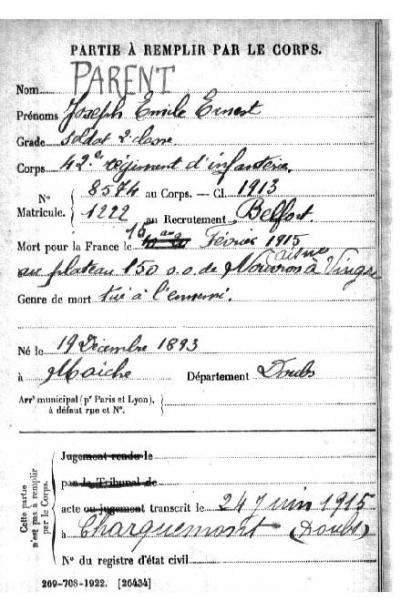 PARTIE À REMPLIR PAR LE CORPS.
Nom PARENT
Prénoms Joseph Emile Ernest
Grade soldat 2e classe
Corps 42e régiment d'infanterie.
N° Matricule. { 8574 au Corps. — Cl. 1913
1222 au Recrutement Belfort
Mort pour la France le 16 Février 1915
au plateau 150 s.o. de Nouvron à Vingré Aisne
Genre de mort tué à l'ennemi.
Né le 19 Décembre 1893
à Maîche Département Doubs
Arr' municipal (p' Paris et Lyon), à défaut rue et N°.
Cette partie n'est pas à remplir par le Corps.
Jugement rendu le
par le Tribunal de
acte ou jugement transcrit le 24 juin 1915
à Charquemont (Doubs)
N° du registre d'état civil
269-708-1922. [26434]